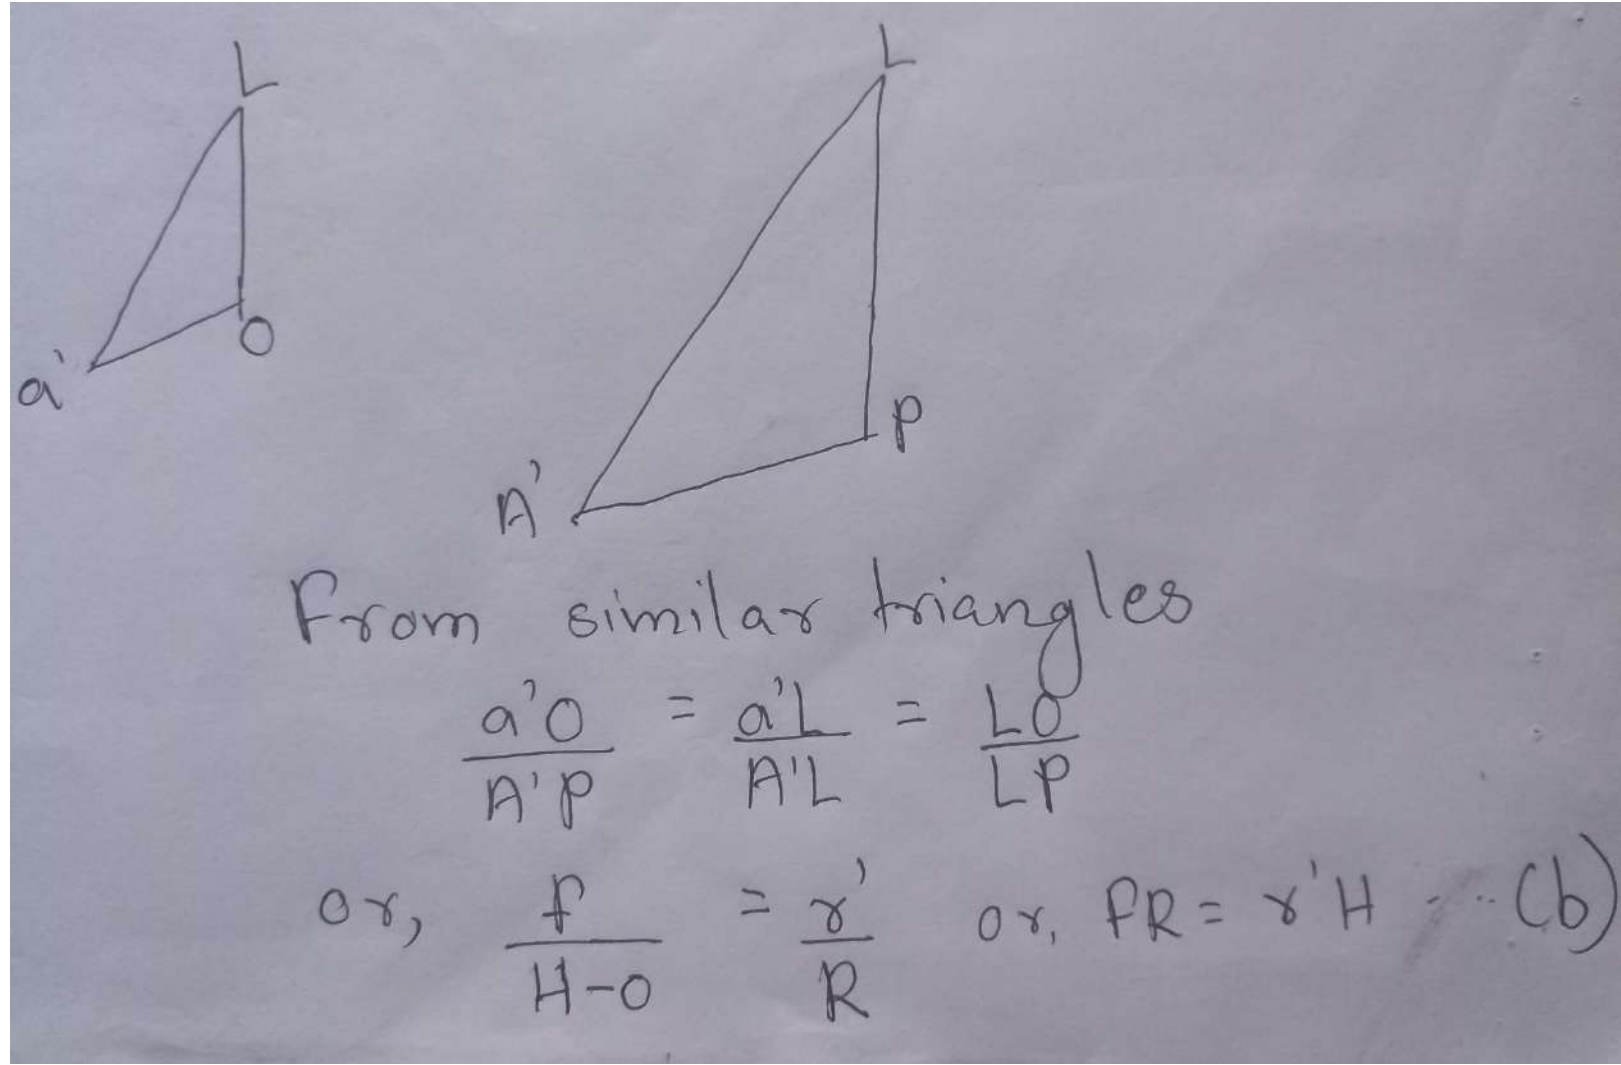 L
L
O
a'
P
A'
From similar triangles
a'O/A'P = a'L/A'L = LO/LP
or, f/H-O = r'/R or, fR = r'H ... (b)